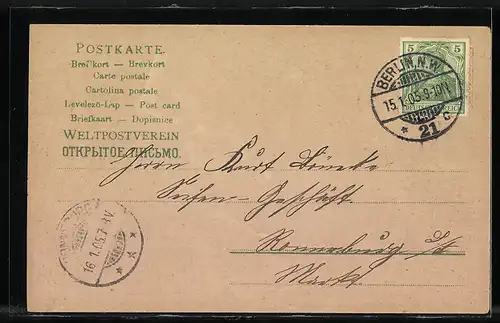 POSTKARTE.
Brefkort — Brevkort
Carte postale
Cartolina postale
Levelező-Lap — Post card
Briefkaart — Dopisnice
WELTPOSTVEREIN
ОТКРЫТОЕ ПИСЬМО.
5 5
BERLIN, N.W.
15.1.05.9-10V.
* 21 c
Herrn Kurt
Seifen-Geschäft.
Ronneburg S/A
Markt.
16.1.05.7-8V.